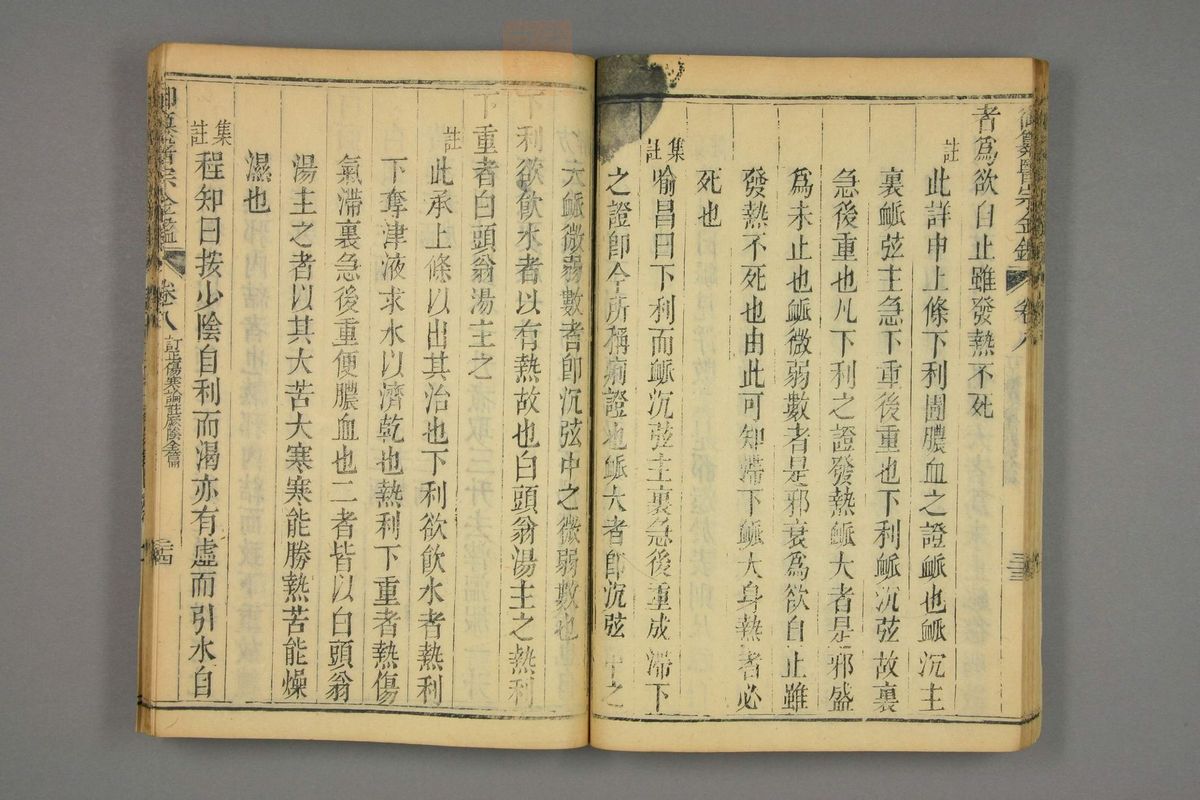 御纂醫宗金鑑 卷八 三三
者為欲自止雖發熱不死
註 此詳申上條下利圊膿血之證脈也脈沉主
裏脈弦主急下重後重也下利脈沉弦故裏
急後重也凡下利之證發熱脈大者是邪盛
為未止也脈微弱數者是邪衰為欲自止雖
發熱不死也由此可知滯下脈大身熱者必
死也
集註 喻昌曰下利而脈沉弦主裏急後重成滯下
之證即今所稱痢證也脈大者即沉弦中之
大脈微弱數者即沉弦中之微弱數也
下利欲飲水者以有熱故也白頭翁湯主之熱利
下重者白頭翁湯主之
註 此承上條以出其治也下利欲飲水者熱利
下奪津液求水以濟乾也熱利下重者熱傷
氣滯裏急後重便膿血也二者皆以白頭翁
湯主之者以其大苦大寒寒能勝熱苦能燥
濕也
集註 程知曰按少陰自利而渴亦有虛而引水自
御纂醫宗金鑑 卷八 訂正傷寒論註厥陰全篇 三四